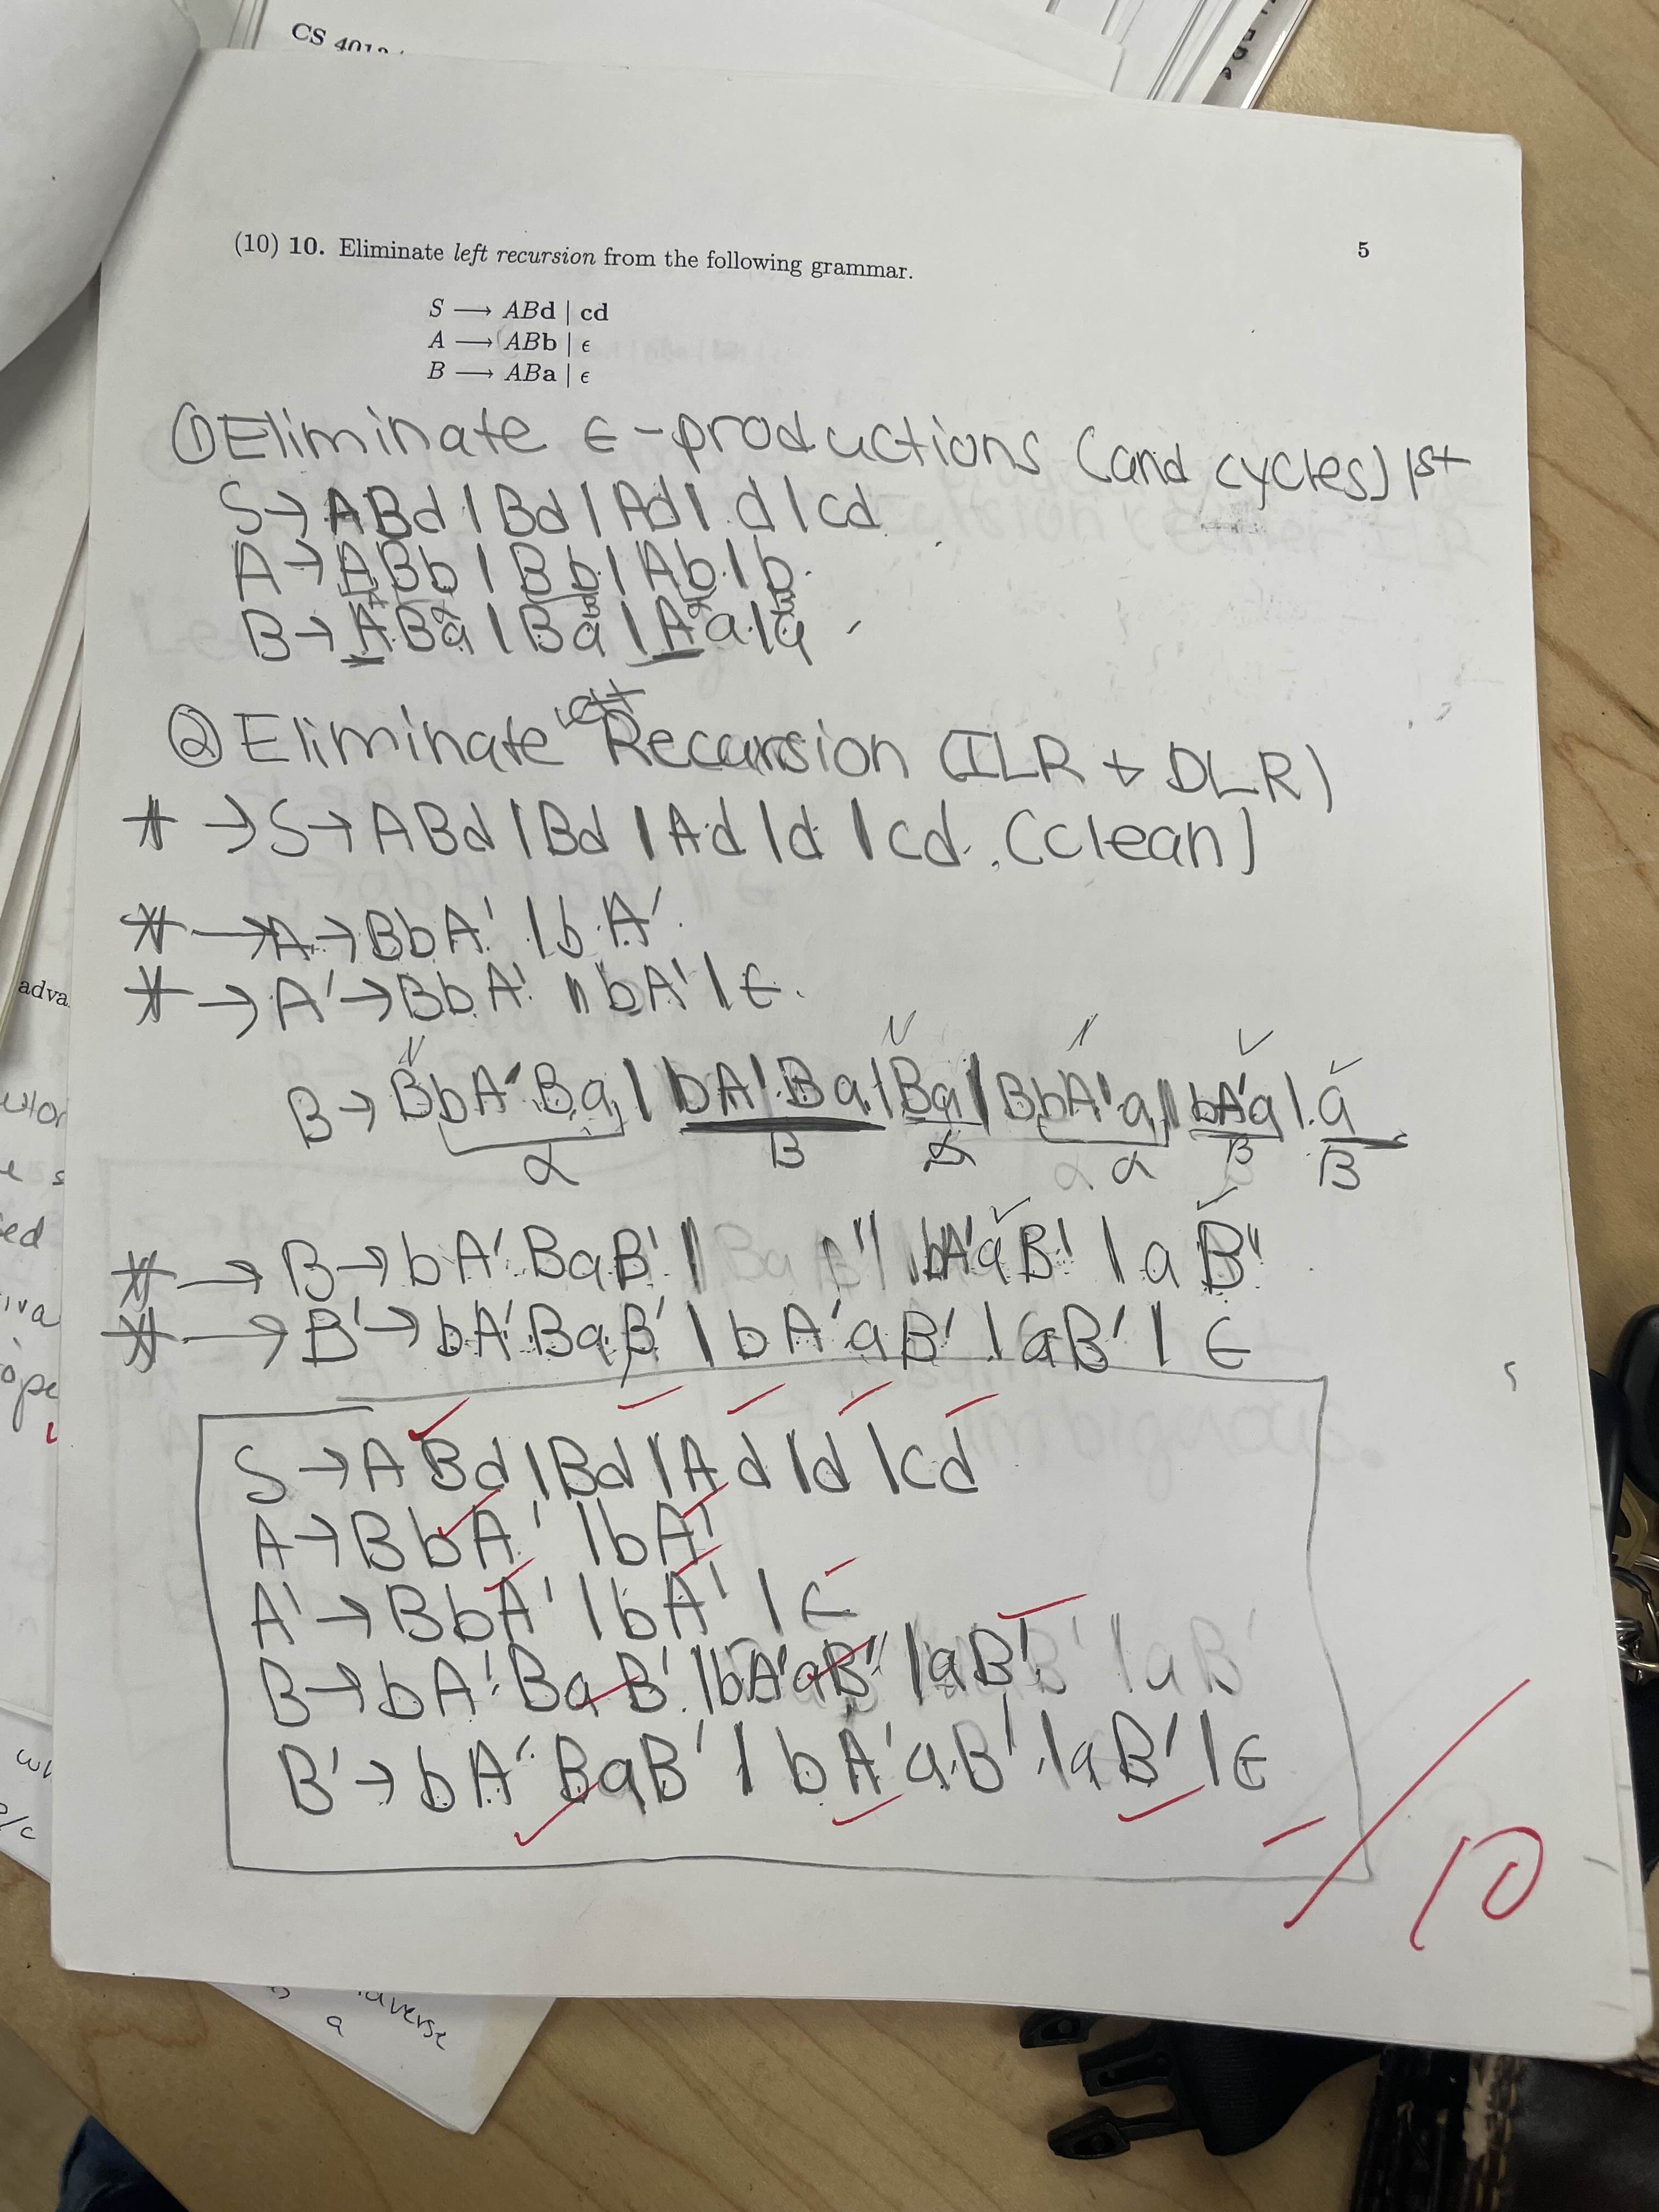 CS 4013
5
(10) 10. Eliminate left recursion from the following grammar.
S → ABd | cd
A → ABb | ϵ
B → ABa | ϵ
① Eliminate ϵ-productions (and cycles) 1st
S → ABd | Bd | Ad | d | cd
A → ABb | Bb | Ab | b
B → ABa | Ba | Aa | a
② Eliminate Left Recursion (ILR + DLR)
* → S → ABd | Bd | Ad | d | cd. (clean)
* → A → BbA' | bA'
* → A' → BbA' | bA' | ϵ
B → BbA'Ba | bA'Ba | Ba | BbA'a | bA'a | a
α B α α B B
* → B → bA'BaB' | bA'aB' | aB'
* → B' → bA'BaB' | bA'aB' | aB' | ϵ
S → ABd | Bd | Ad | d | cd
A → BbA' | bA'
A' → BbA' | bA' | ϵ
B → bA'BaB' | bA'aB' | aB'
B' → bA'BaB' | bA'aB' | aB' | ϵ
/10
adva
averse
a